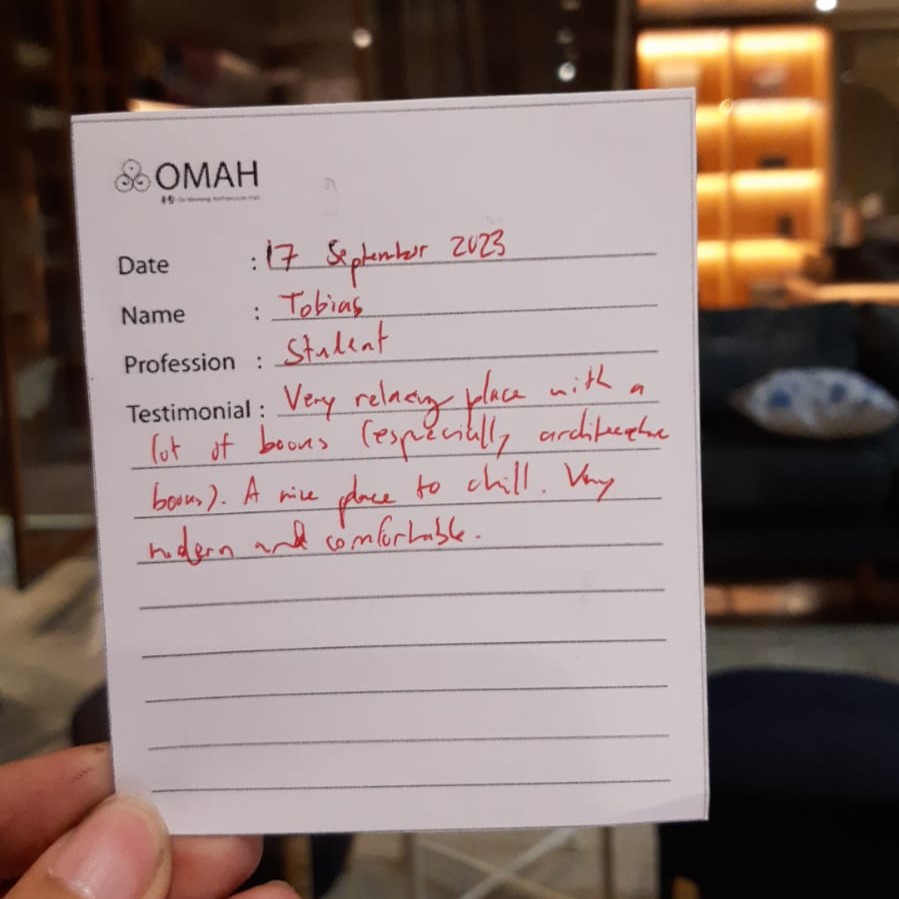 OMAH
Date : 17 September 2023
Name : Tobias
Profession : Student
Testimonial : Very relaxing place with a
lot of books (especially architecture
books). A nice place to chill. Very
modern and comfortable.